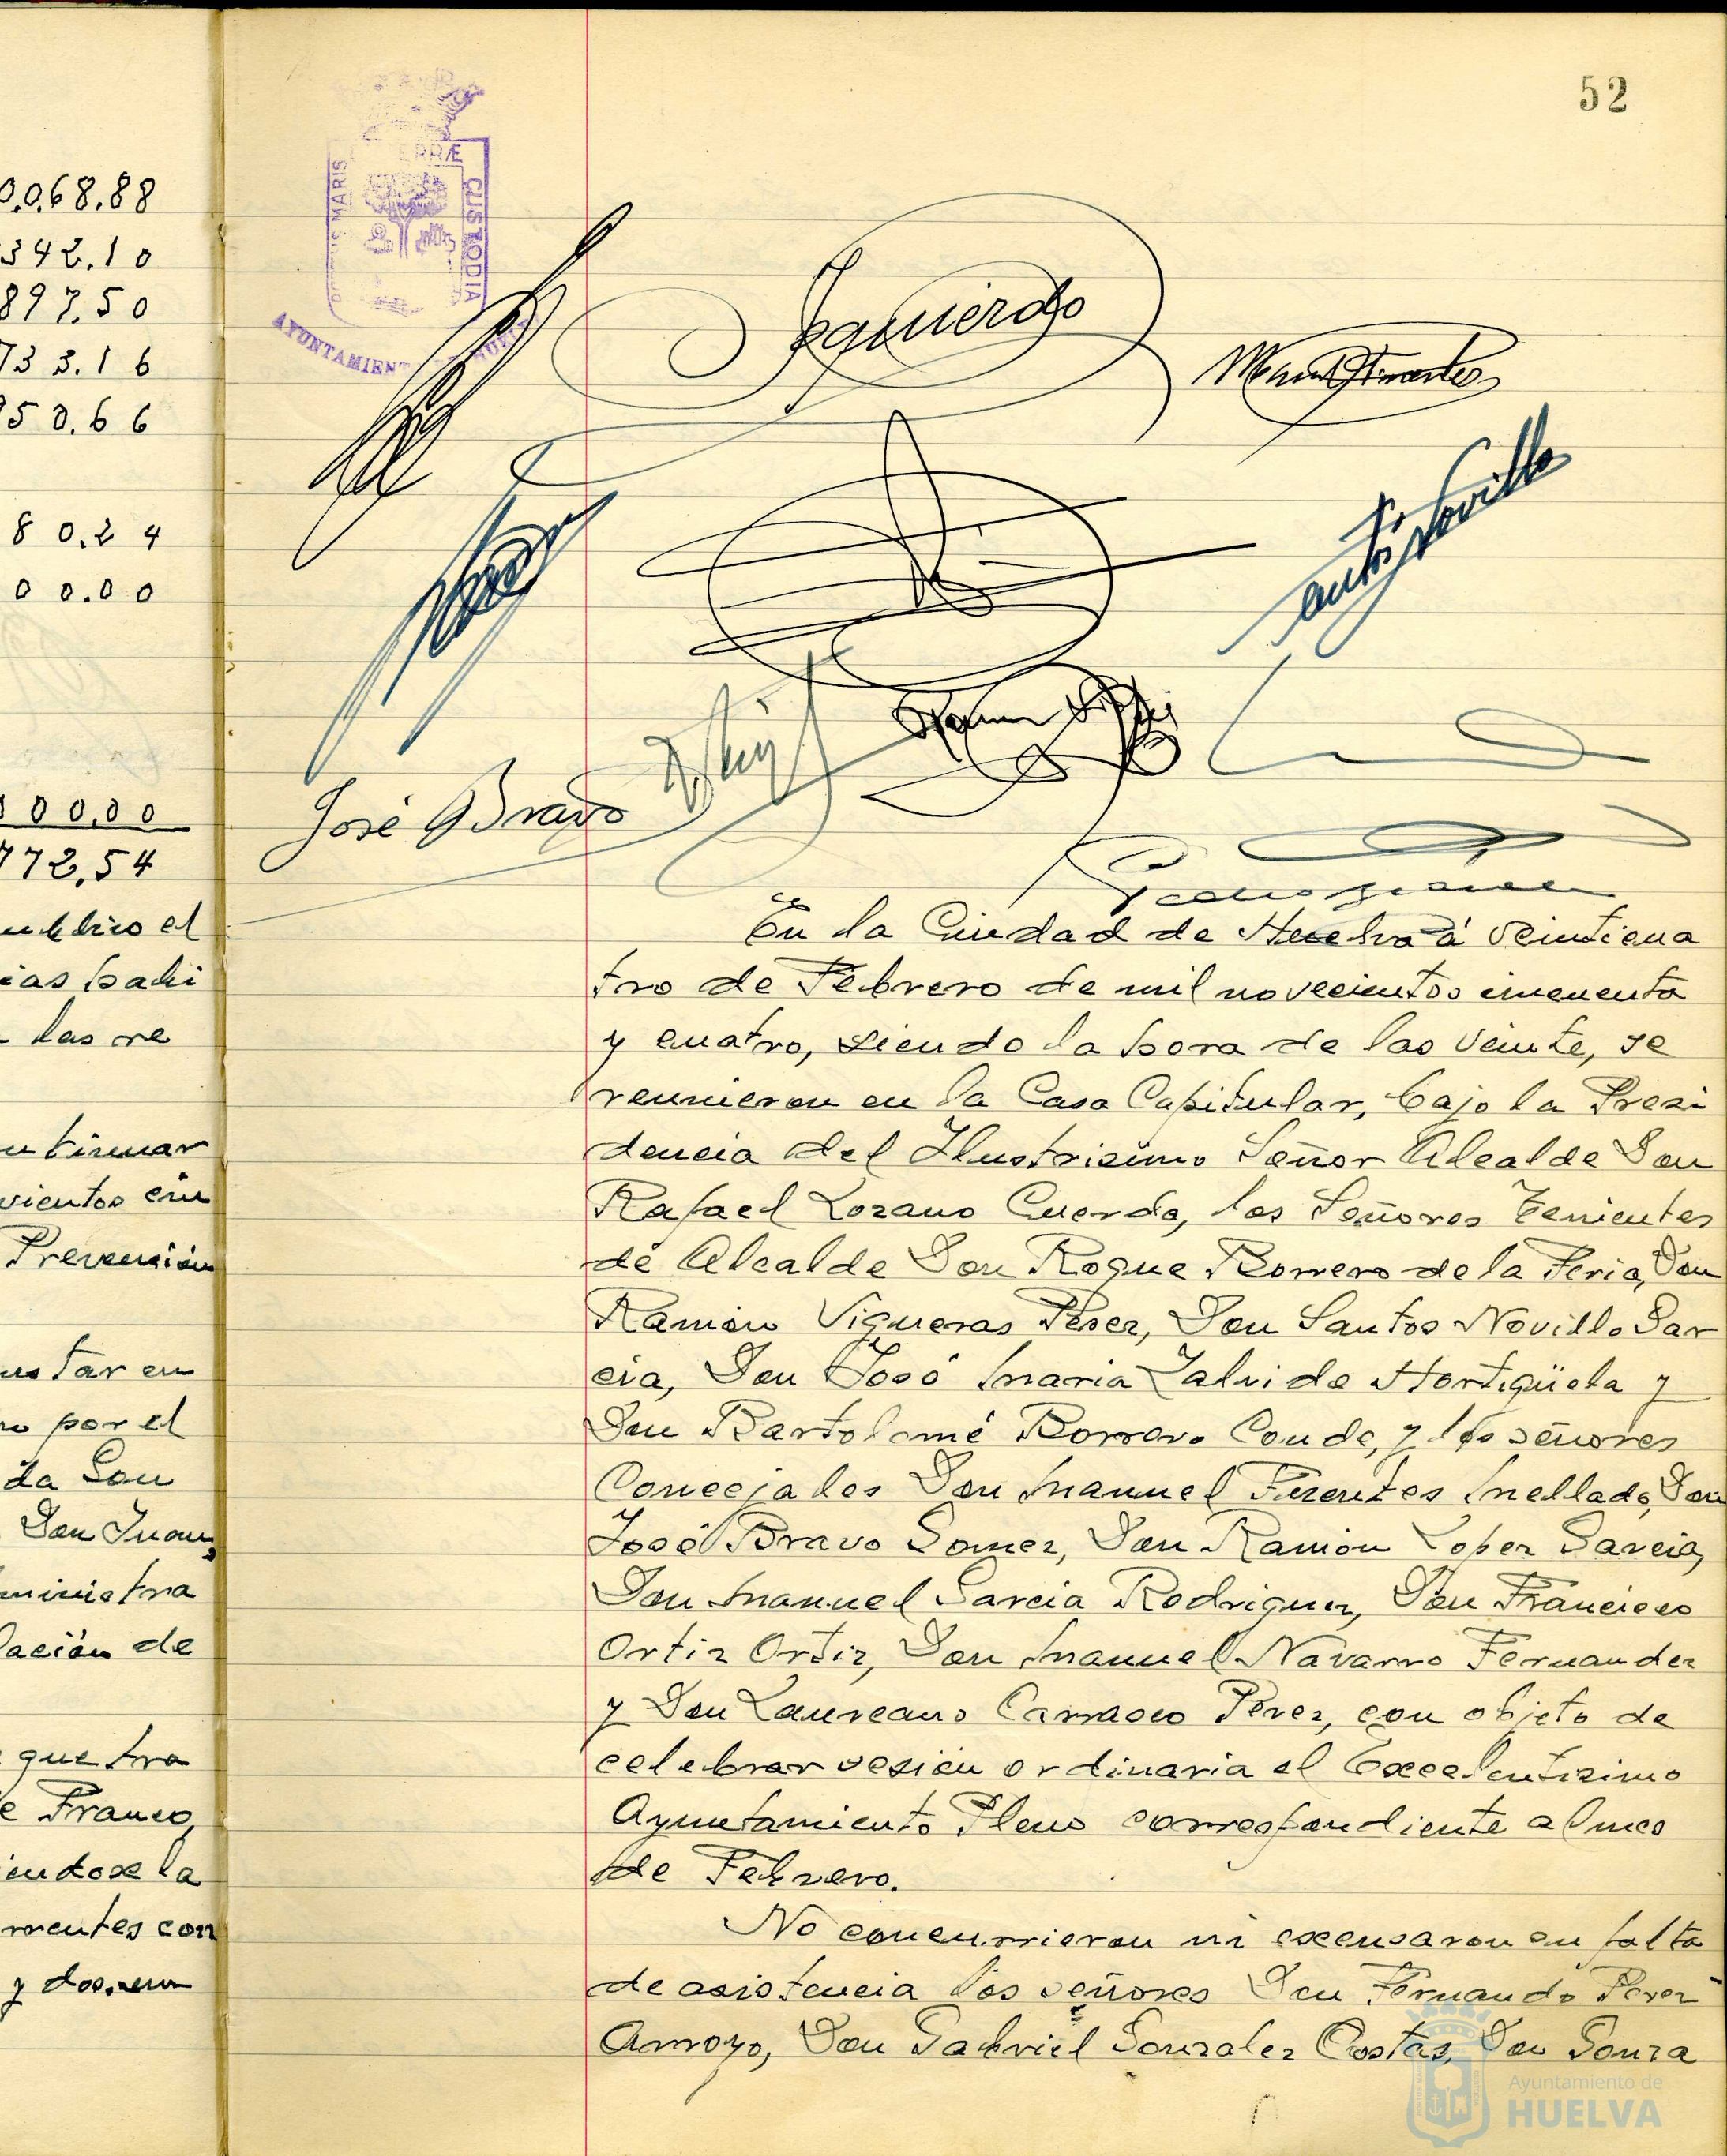 0.068.88
342.10
897.50
733.16
950.66
80.24
00.00
00.00
772.54
el
las re
Prevención
tar en
no por el
da Don
Don Juan
ministra
lación de
que tra
e Franco,
iendose la
rrientes con
52
TERRÆ
MARIS
CUSTODIA
AYUNTAMIENTO DE HUELVA
Izquierdo
José Bravo
En la Ciudad de Huelva á veinticua
tro de Febrero de mil novecientos cincuenta
y cuatro, siendo la hora de las veinte, se
reunieron en la Casa Capitular, bajo la Presi
dencia del Ilustrisimo Señor Alcalde Don
Rafael Lozano Cuerda, los Señores Tenientes
de Alcalde Don Roque Romero de la Feria, Don
Ramón Vigueras Pérez, Don Santos Novillo Gar
cia, Don José Maria Zalvide Hortigüela y
Don Bartolomé Borrero Conde, y los señores
Concejales Don Manuel Fuentes Mellado, Don
José Bravo Gomez, Don Ramón Lopez Garcia,
Don Manuel Garcia Rodriguez, Don Francisco
Ortiz Ortiz, Don Manuel Navarro Fernandez
y Don Laureano Carrasco Pérez, con objeto de
celebrar sesión ordinaria el Excelentisimo
Ayuntamiento Pleno correspondiente al mes
de Febrero.
No concurrieron ni excusaron su falta
de asistencia los señores Don Fernando Perez
Arroyo, Don Gabriel Gonzalez Costas, Don Gonza
Ayuntamiento de
HUELVA